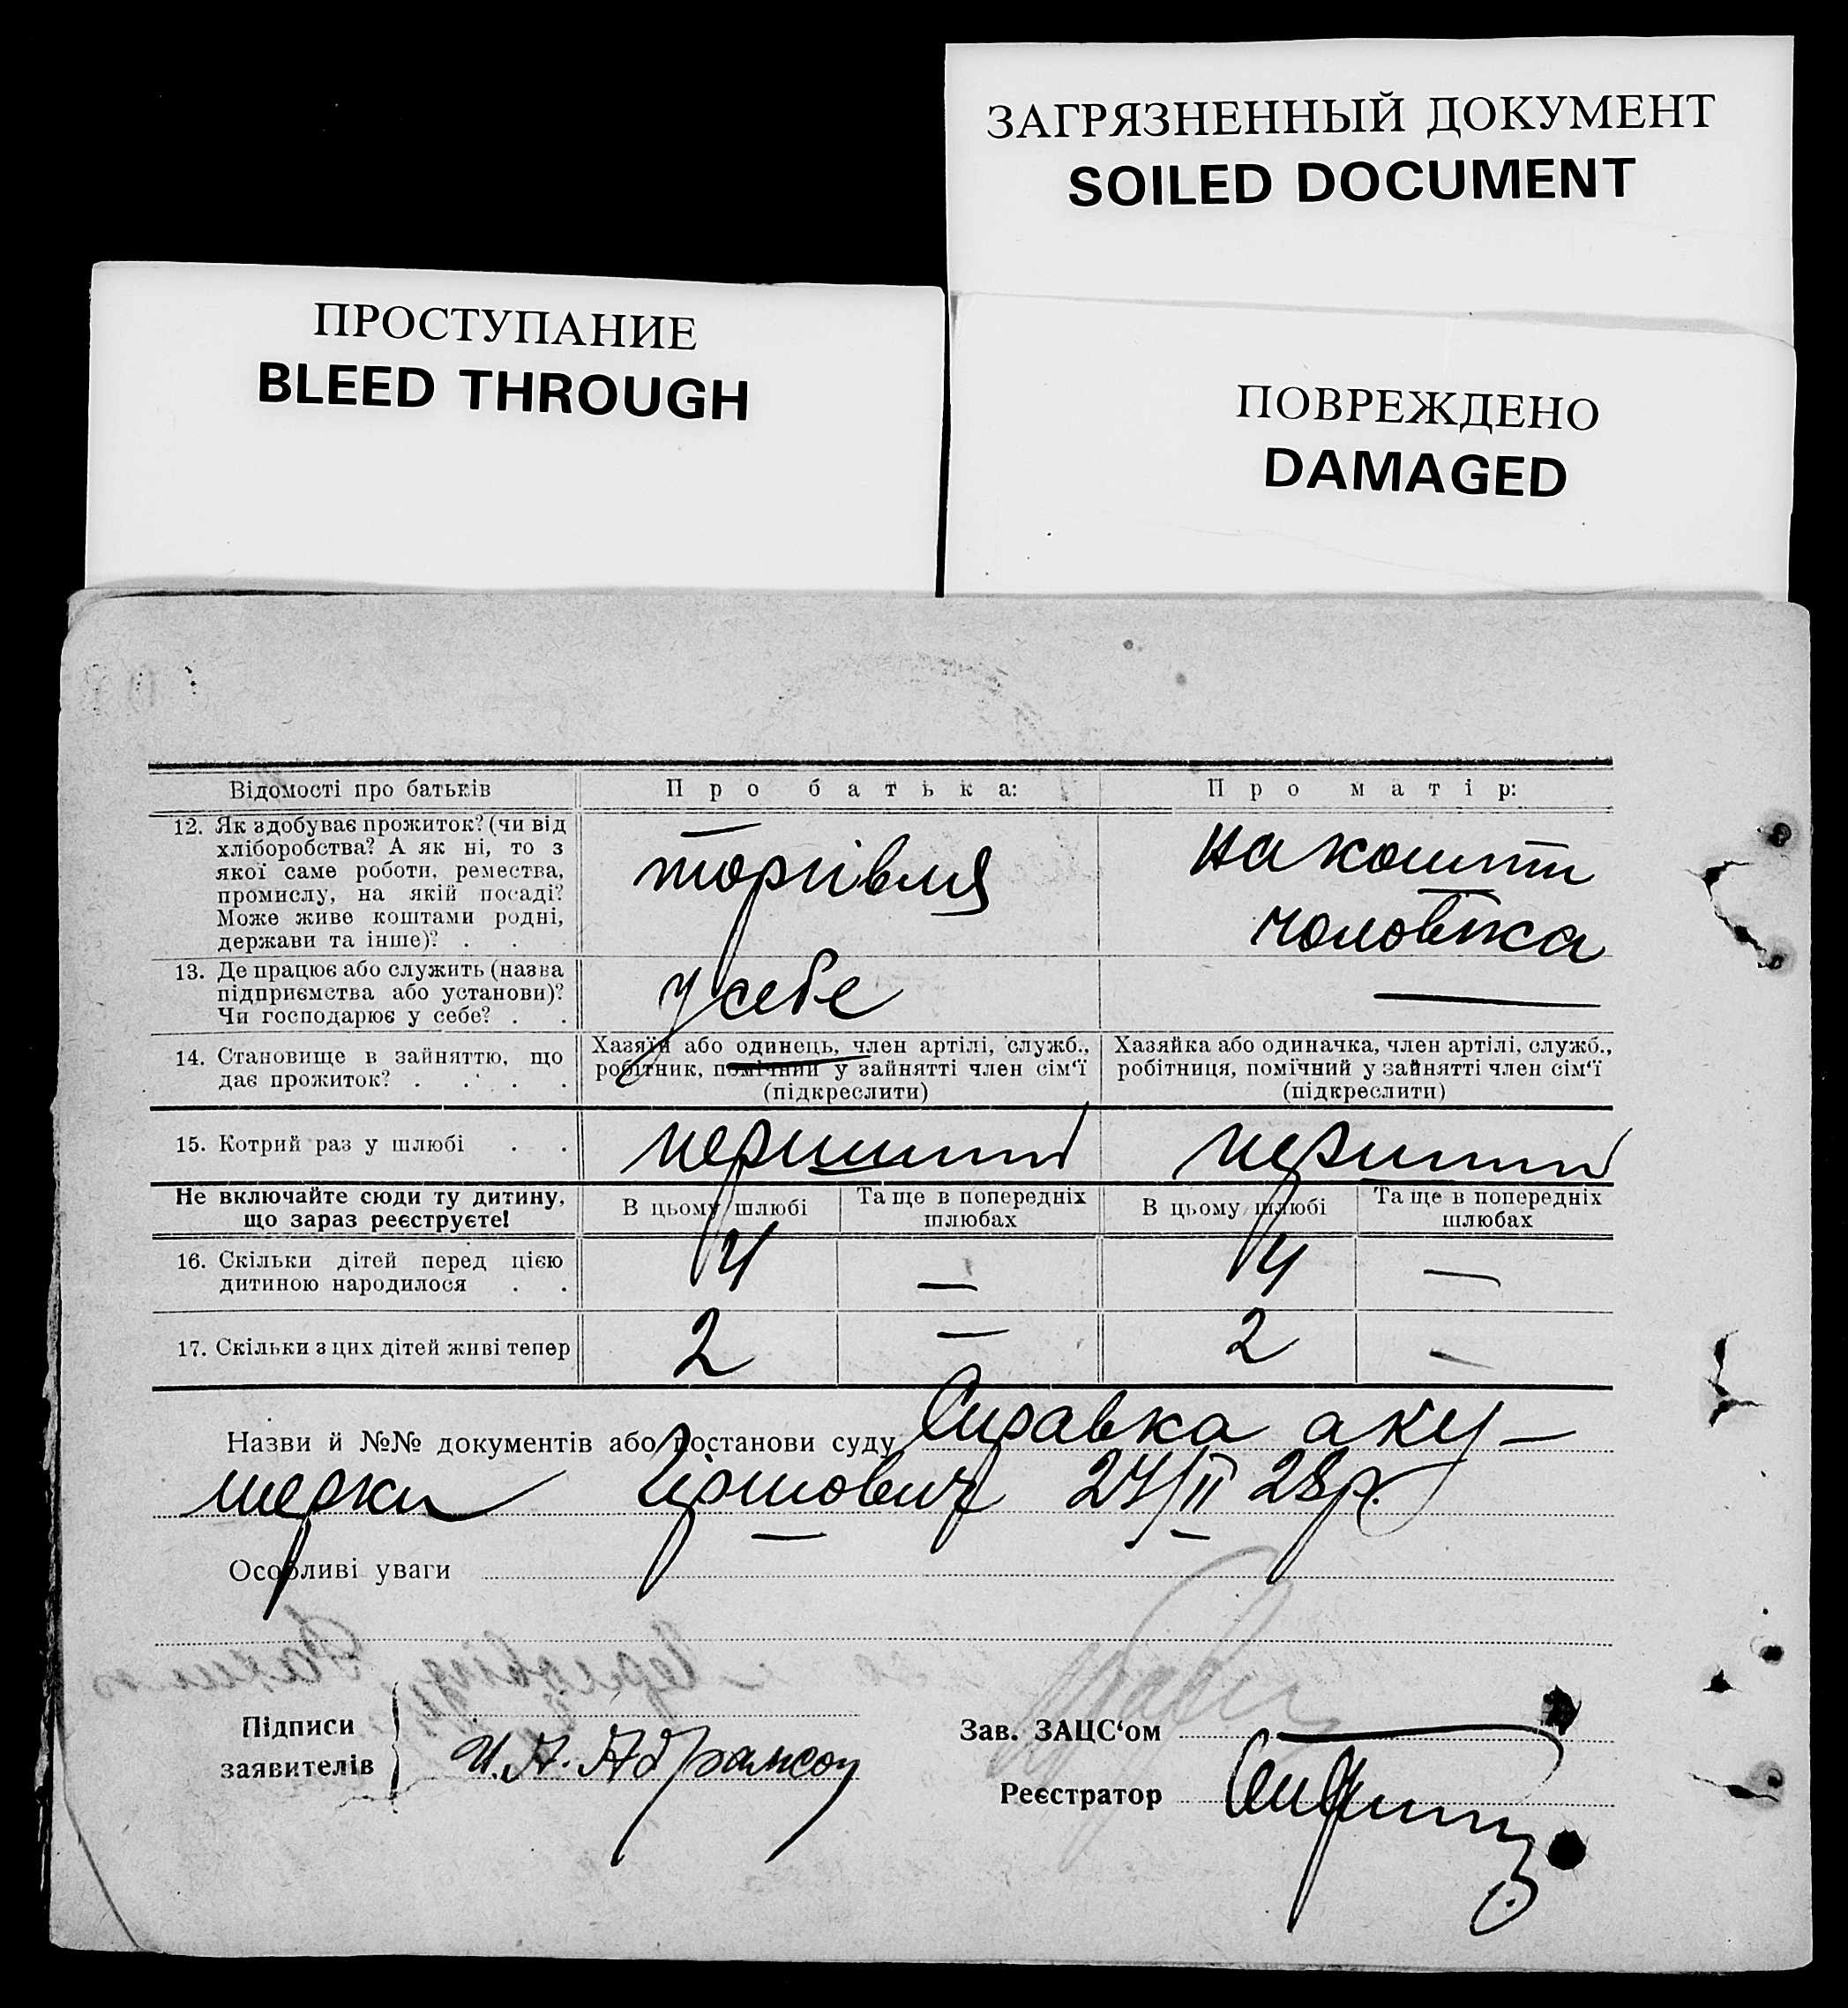 ЗАГРЯЗНЕННЫЙ ДОКУМЕНТ
SOILED DOCUMENT
ПРОСТУПАНИЕ
BLEED THROUGH
ПОВРЕЖДЕНО
DAMAGED
Відомості про батьків
Про батька:
Про матір:
12. Як здобуває прожиток? (чи від
хліборобства? А як ні, то з
якої саме роботи, ремества,
промислу, на якій посаді?
Може живе коштами родні,
держави та інше)? . .
торгівля
на кошти
чоловіка
13. Де працює або служить (назва
підприємства або установи)?
Чи господарює у себе? . .
у себе
—
14. Становище в зайняттю, що
дає прожиток? . . . .
Хазяїн або одинець, член артілі, служб.,
робітник, помічний у зайнятті член сім‘ї
(підкреслити)
Хазяйка або одиначка, член артілі, служб.,
робітниця, помічний у зайнятті член сім‘ї
(підкреслити)
15. Котрий раз у шлюбі . .
перший
перший
Не включайте сюди ту дитину,
що зараз реєструєте!
В цьому шлюбі
Та ще в попередніх
шлюбах
В цьому шлюбі
Та ще в попередніх
шлюбах
16. Скільки дітей перед цією
дитиною народилося . .
4 — 4 —
17. Скільки з цих дітей живі тепер
2 — 2 —
Назви й №№ документів або постанови суду Справка аку-
шерки Гіршович 27/II 28р.
Особливі уваги
Підписи
заявителів
И. А. Абрамсон
Зав. ЗАЦС‘ом
Реєстратор